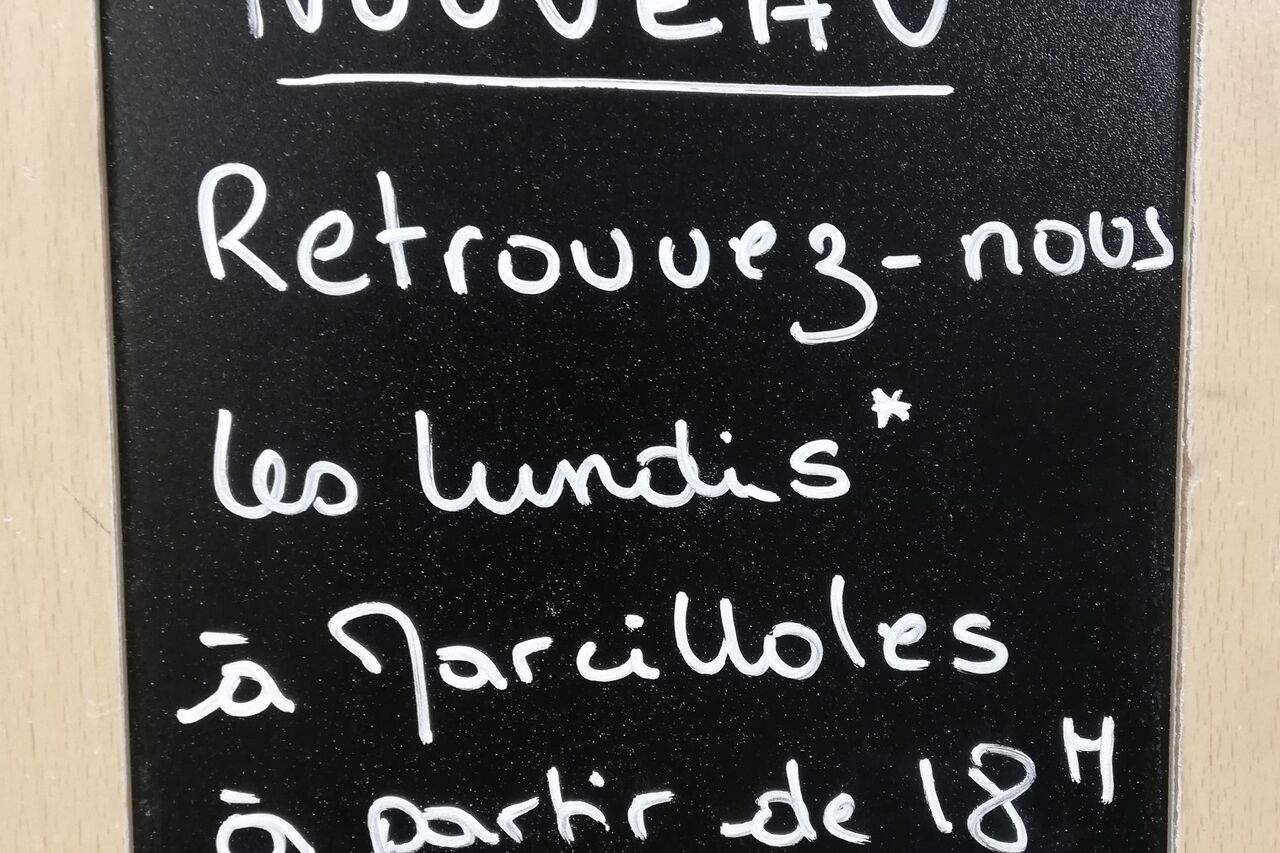 NOUVEAU
Retrouvez-nous
les lundis*
à Marcilloles
à partir de 18H